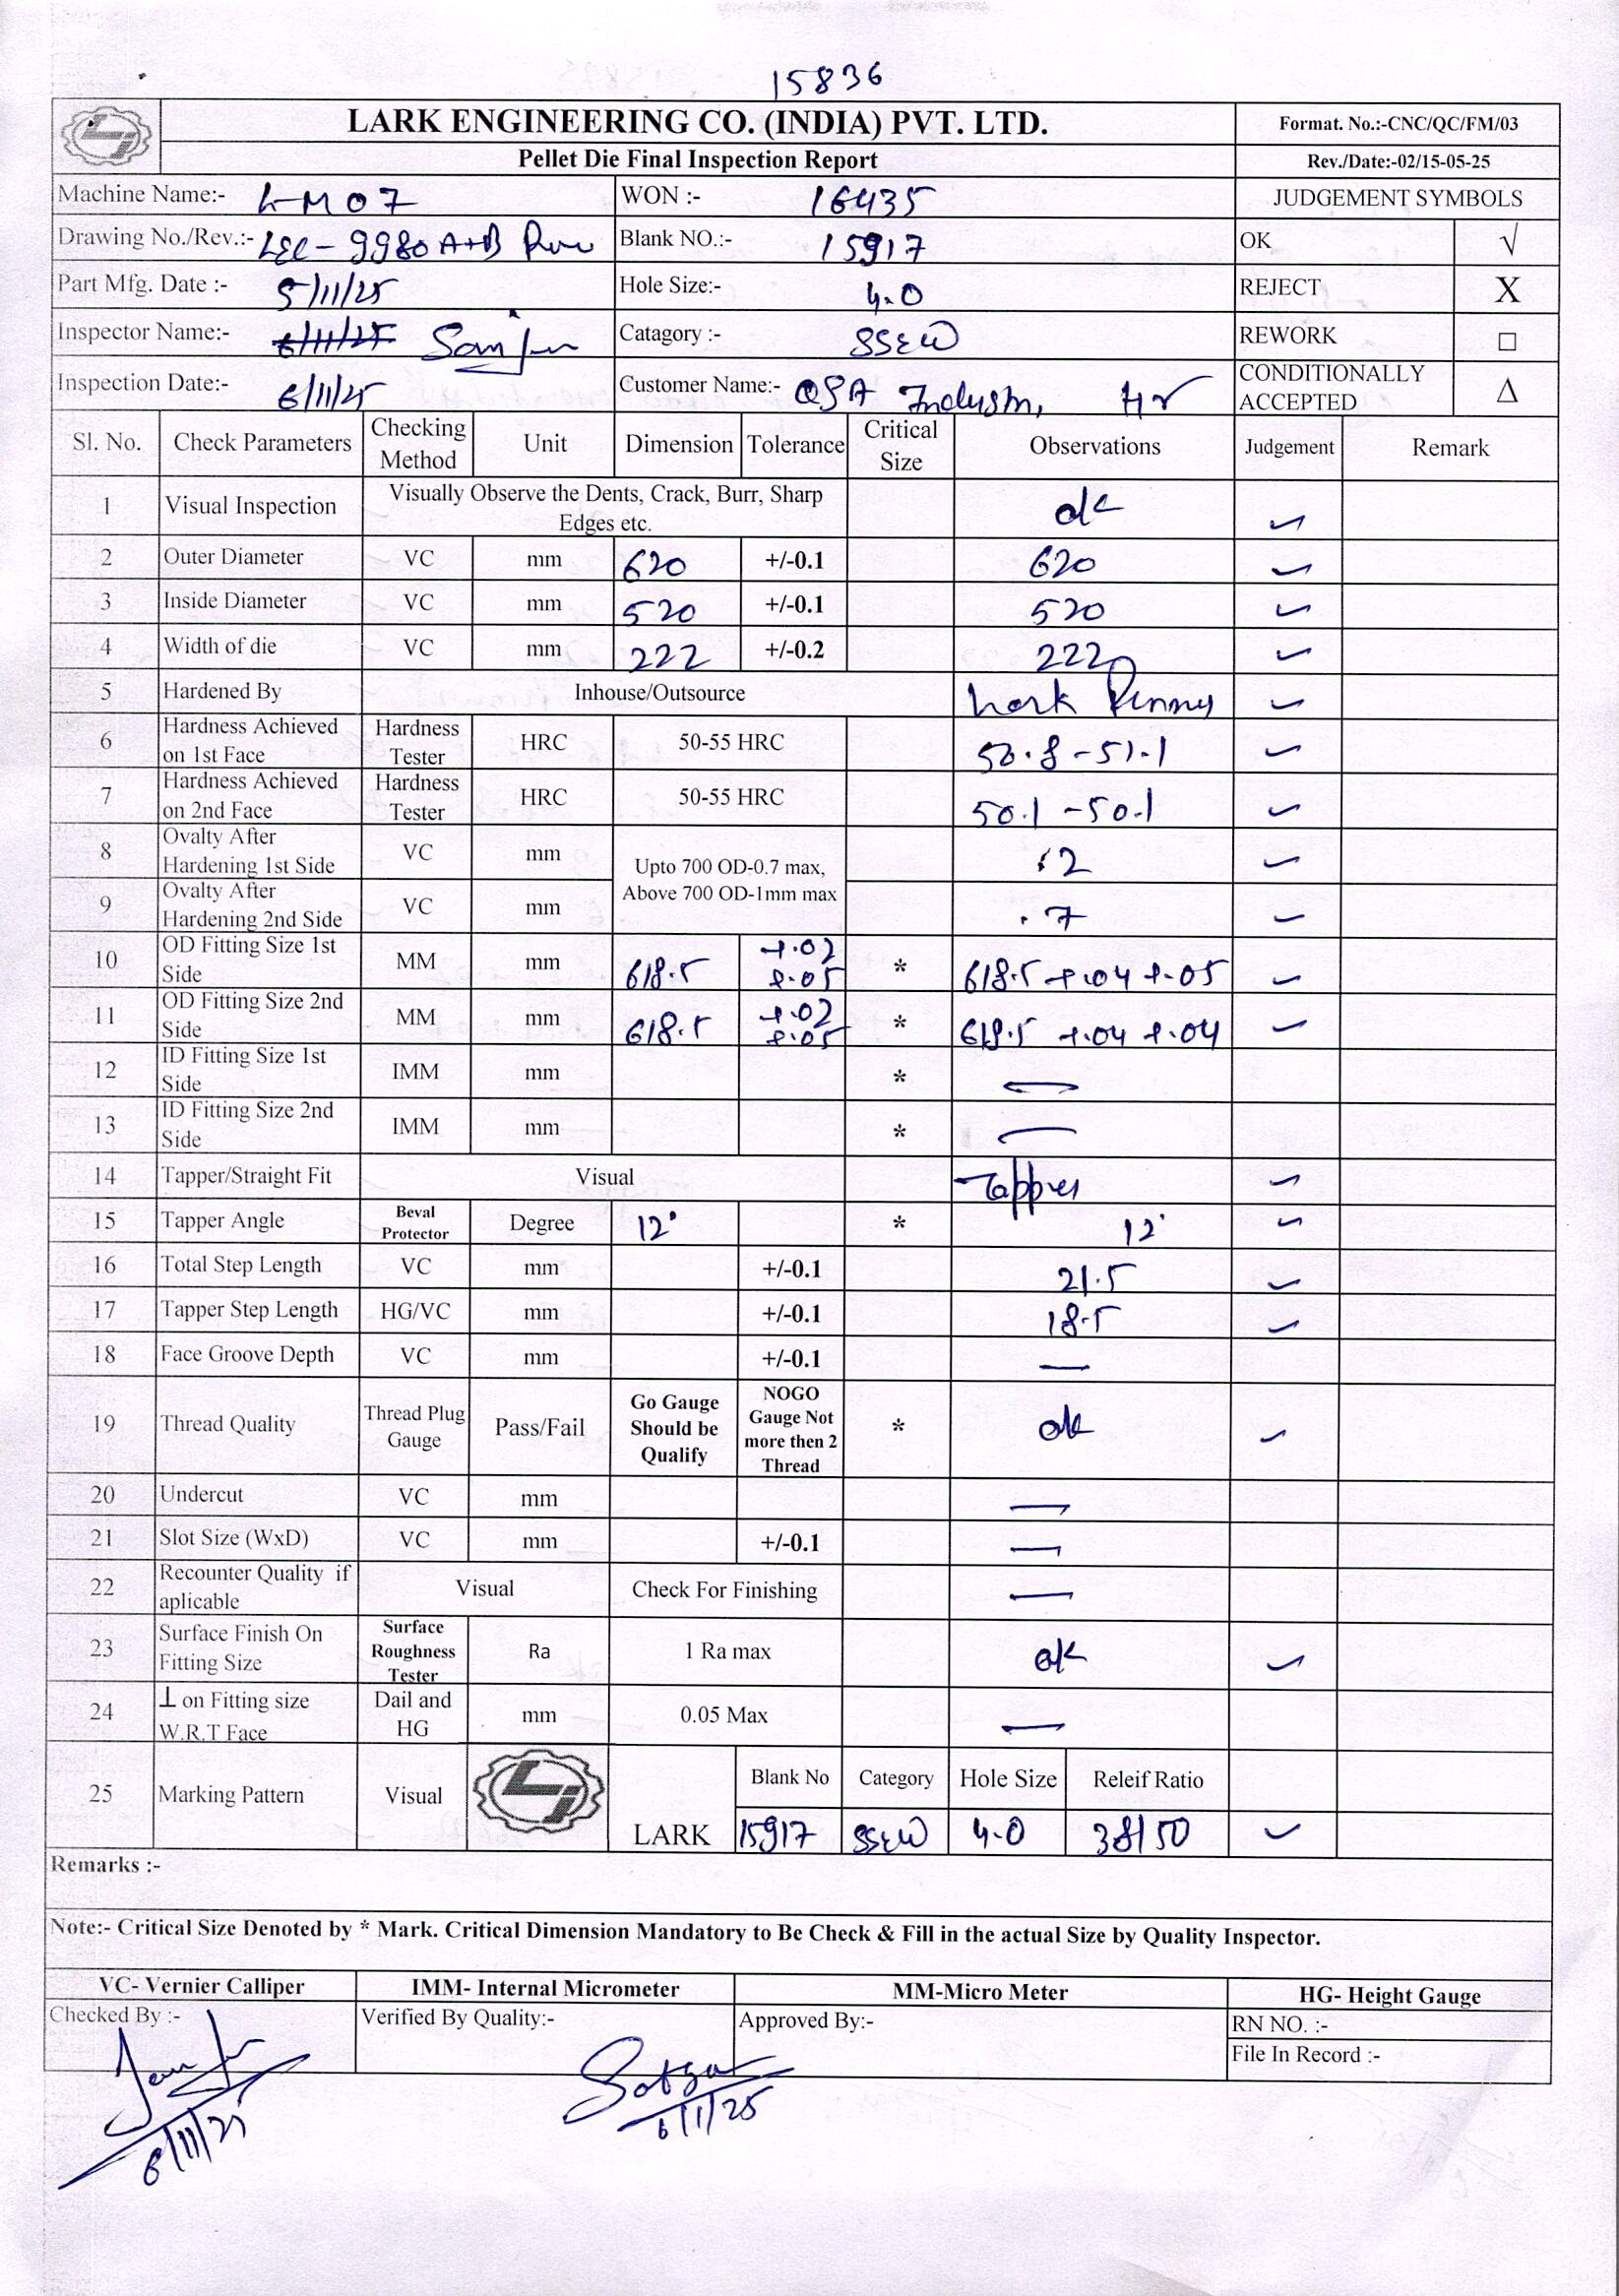 15836
LARK ENGINEERING CO. (INDIA) PVT. LTD. Format. No.:-CNC/QC/FM/03
Pellet Die Final Inspection Report Rev./Date:-02/15-05-25
Machine Name:- LM07 WON :- 16435 JUDGEMENT SYMBOLS
Drawing No./Rev.:- LEC-9980 A+B Blank NO.:- 15917 OK √
Part Mfg. Date :- 5/11/25 Hole Size:- 4.0 REJECT X
Inspector Name:- Catagory :- SSEW REWORK □
Inspection Date:- 6/11/25 Customer Name:- HR CONDITIONALLY ACCEPTED Δ
Sl. No. Check Parameters Checking Method Unit Dimension Tolerance Critical Size Observations Judgement Remark
1 Visual Inspection Visually Observe the Dents, Crack, Burr, Sharp Edges etc. ok ✓
2 Outer Diameter VC mm 620 +/-0.1 620 ✓
3 Inside Diameter VC mm 520 +/-0.1 520 ✓
4 Width of die VC mm 222 +/-0.2 222 ✓
5 Hardened By Inhouse/Outsource Lark ✓
6 Hardness Achieved on 1st Face Hardness Tester HRC 50-55 HRC 50.8-51.1 ✓
7 Hardness Achieved on 2nd Face Hardness Tester HRC 50-55 HRC 50.1-50.1 ✓
8 Ovalty After Hardening 1st Side VC mm Upto 700 OD-0.7 max, Above 700 OD-1mm max .2 ✓
9 Ovalty After Hardening 2nd Side VC mm .7 ✓
10 OD Fitting Size 1st Side MM mm 618.5 +.02 +.05 * 618.5 +.04 +.05 ✓
11 OD Fitting Size 2nd Side MM mm 618.5 +.02 +.05 * 618.5 +.04 +.04 ✓
12 ID Fitting Size 1st Side IMM mm * —
13 ID Fitting Size 2nd Side IMM mm * —
14 Tapper/Straight Fit Visual Tapper ✓
15 Tapper Angle Beval Protector Degree 12° * 12° ✓
16 Total Step Length VC mm +/-0.1 21.5 ✓
17 Tapper Step Length HG/VC mm +/-0.1 18.5 ✓
18 Face Groove Depth VC mm +/-0.1 —
19 Thread Quality Thread Plug Gauge Pass/Fail Go Gauge Should be Qualify NOGO Gauge Not more then 2 Thread * ok ✓
20 Undercut VC mm —
21 Slot Size (WxD) VC mm +/-0.1 —
22 Recounter Quality if aplicable Visual Check For Finishing —
23 Surface Finish On Fitting Size Surface Roughness Tester Ra 1 Ra max ok ✓
24 ⊥ on Fitting size W.R.T Face Dail and HG mm 0.05 Max —
25 Marking Pattern Visual LARK Blank No Category Hole Size Releif Ratio
15917 SSEW 4.0 38/50 ✓
Remarks :-
Note:- Critical Size Denoted by * Mark. Critical Dimension Mandatory to Be Check & Fill in the actual Size by Quality Inspector.
VC- Vernier Calliper IMM- Internal Micrometer MM-Micro Meter HG- Height Gauge
Checked By :- Verified By Quality:- Approved By:- RN NO. :-
File In Record :-